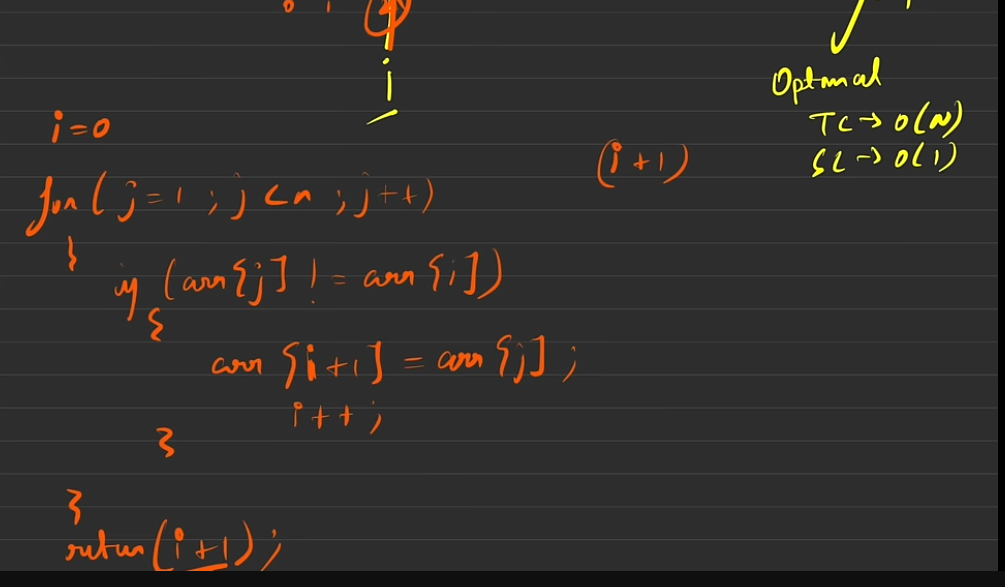 i
Optimal
TC -> O(N)
SC -> O(1)
i=0
(i+1)
for (j=1; j<n; j++)
{
if (arr[j] != arr[i])
{
arr[i+1] = arr[j];
i++;
}
}
return (i+1);